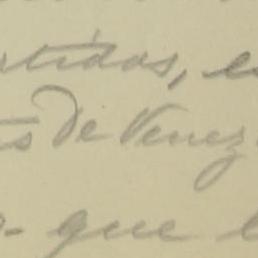 rtidas, es
ts de Venez
- que l